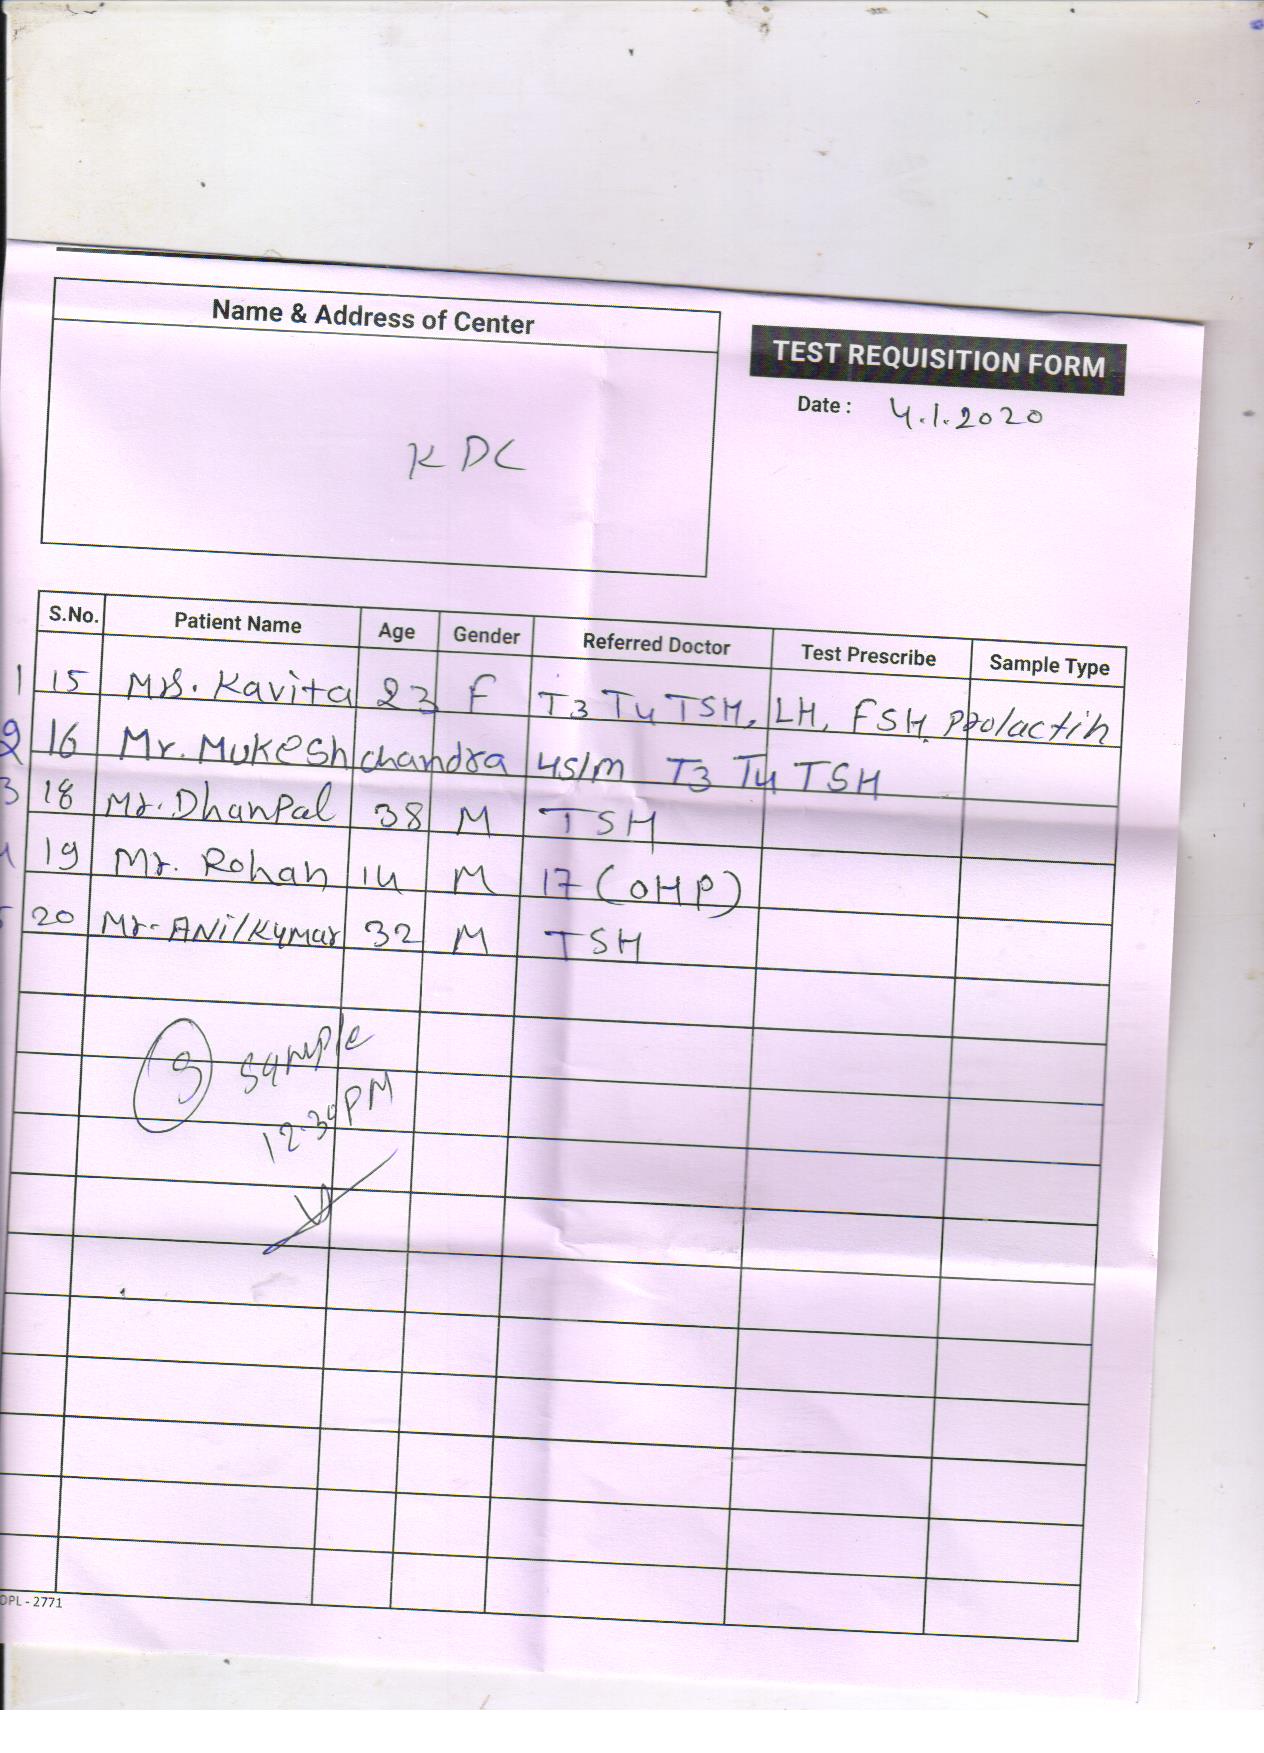 Name & Address of Center
TEST REQUISITION FORM
Date : 4.1.2020
KDC
S.No. Patient Name Age Gender Referred Doctor Test Prescribe Sample Type
1 15 Mrs. Kavita 23 F T3 T4 TSH, LH, FSH, Prolactin
2 16 Mr. Mukesh chandra 45/M T3 T4 TSH
3 18 Mr. Dhanpal 38 M TSH
4 19 Mr. Rohan 14 M 17 (OHP)
5 20 Mr. Anil Kumar 32 M TSH
Sample
12.30 PM
OPL - 2771